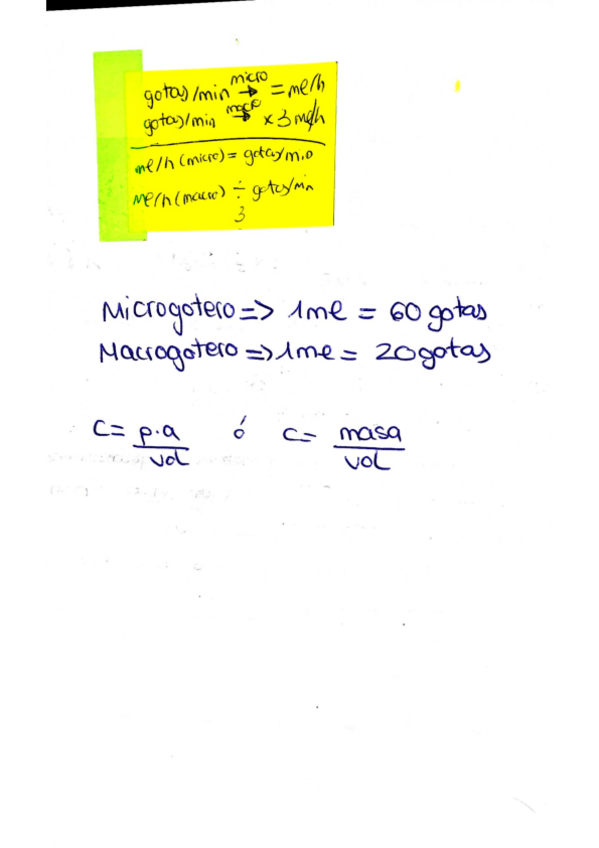 gotas/min micro → = ml/h
gotas/min macro → x 3 ml/h
ml/h (micro) = gotas/min
ml/h (macro) ÷ gotas/min
3
Microgotero => 1ml = 60 gotas
Macrogotero => 1ml = 20 gotas
C = p.a / vol ó C = masa / vol